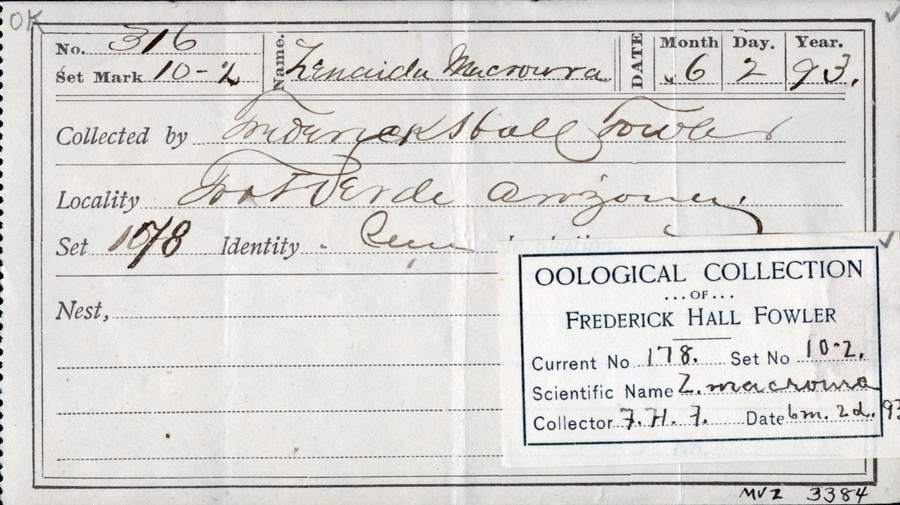 OK
No. 316
Name. Zenaida Macroura
DATE Month 6 Day. 2 Year. 93.
Set Mark 10-2
Collected by Frederick Hall Fowler
Locality Fort Verde Arizona.
Set 178 Identity
Nest,
OOLOGICAL COLLECTION
...OF...
FREDERICK HALL FOWLER
Current No 178. Set No 10-2.
Scientific Name Z. macroura
Collector F. H. F. Date 6m. 2d. 93
No.
MVZ 3384